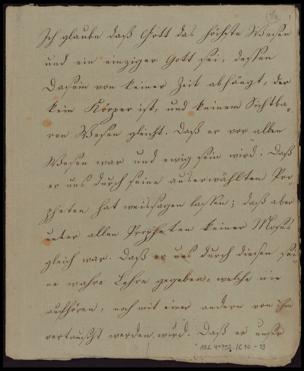 Ich glaube daß Gott das höchste Wesen
und ein einziger Gott sei, dessen
Dasein von keiner Zeit abhängt, der
kein Körper ist, und keinem Sichtba-
ren Wesen gleicht. Daß er vor allen
Wesen war und ewig sein wird. Daß
er uns durch seine auserwählten Pro-
pheten hat weissagen lassen; daß aber
unter allen Propheten keiner Moses
gleich war. Daß er uns durch diesen sei-
ne wahre Lehre gegeben, welche nie
aufhören, noch mit einer andern von ihm
vertauscht werden wird. Daß er unsre